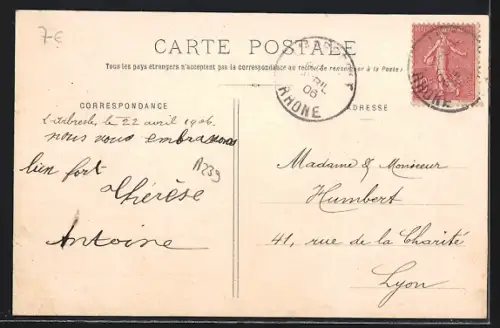 7€
CARTE POSTALE
Tous les pays étrangers n'acceptent pas la correspondance au recto, se renseigner à la Poste
CORRESPONDANCE
ADRESSE
RHONE
06
RHONE
L'Arbresle, le 22 avril 1906.
nous vous embrassons
bien fort
Thérèse
Antoine
A239
Madame & Monsieur
Humbert
41, rue de la Charité
Lyon